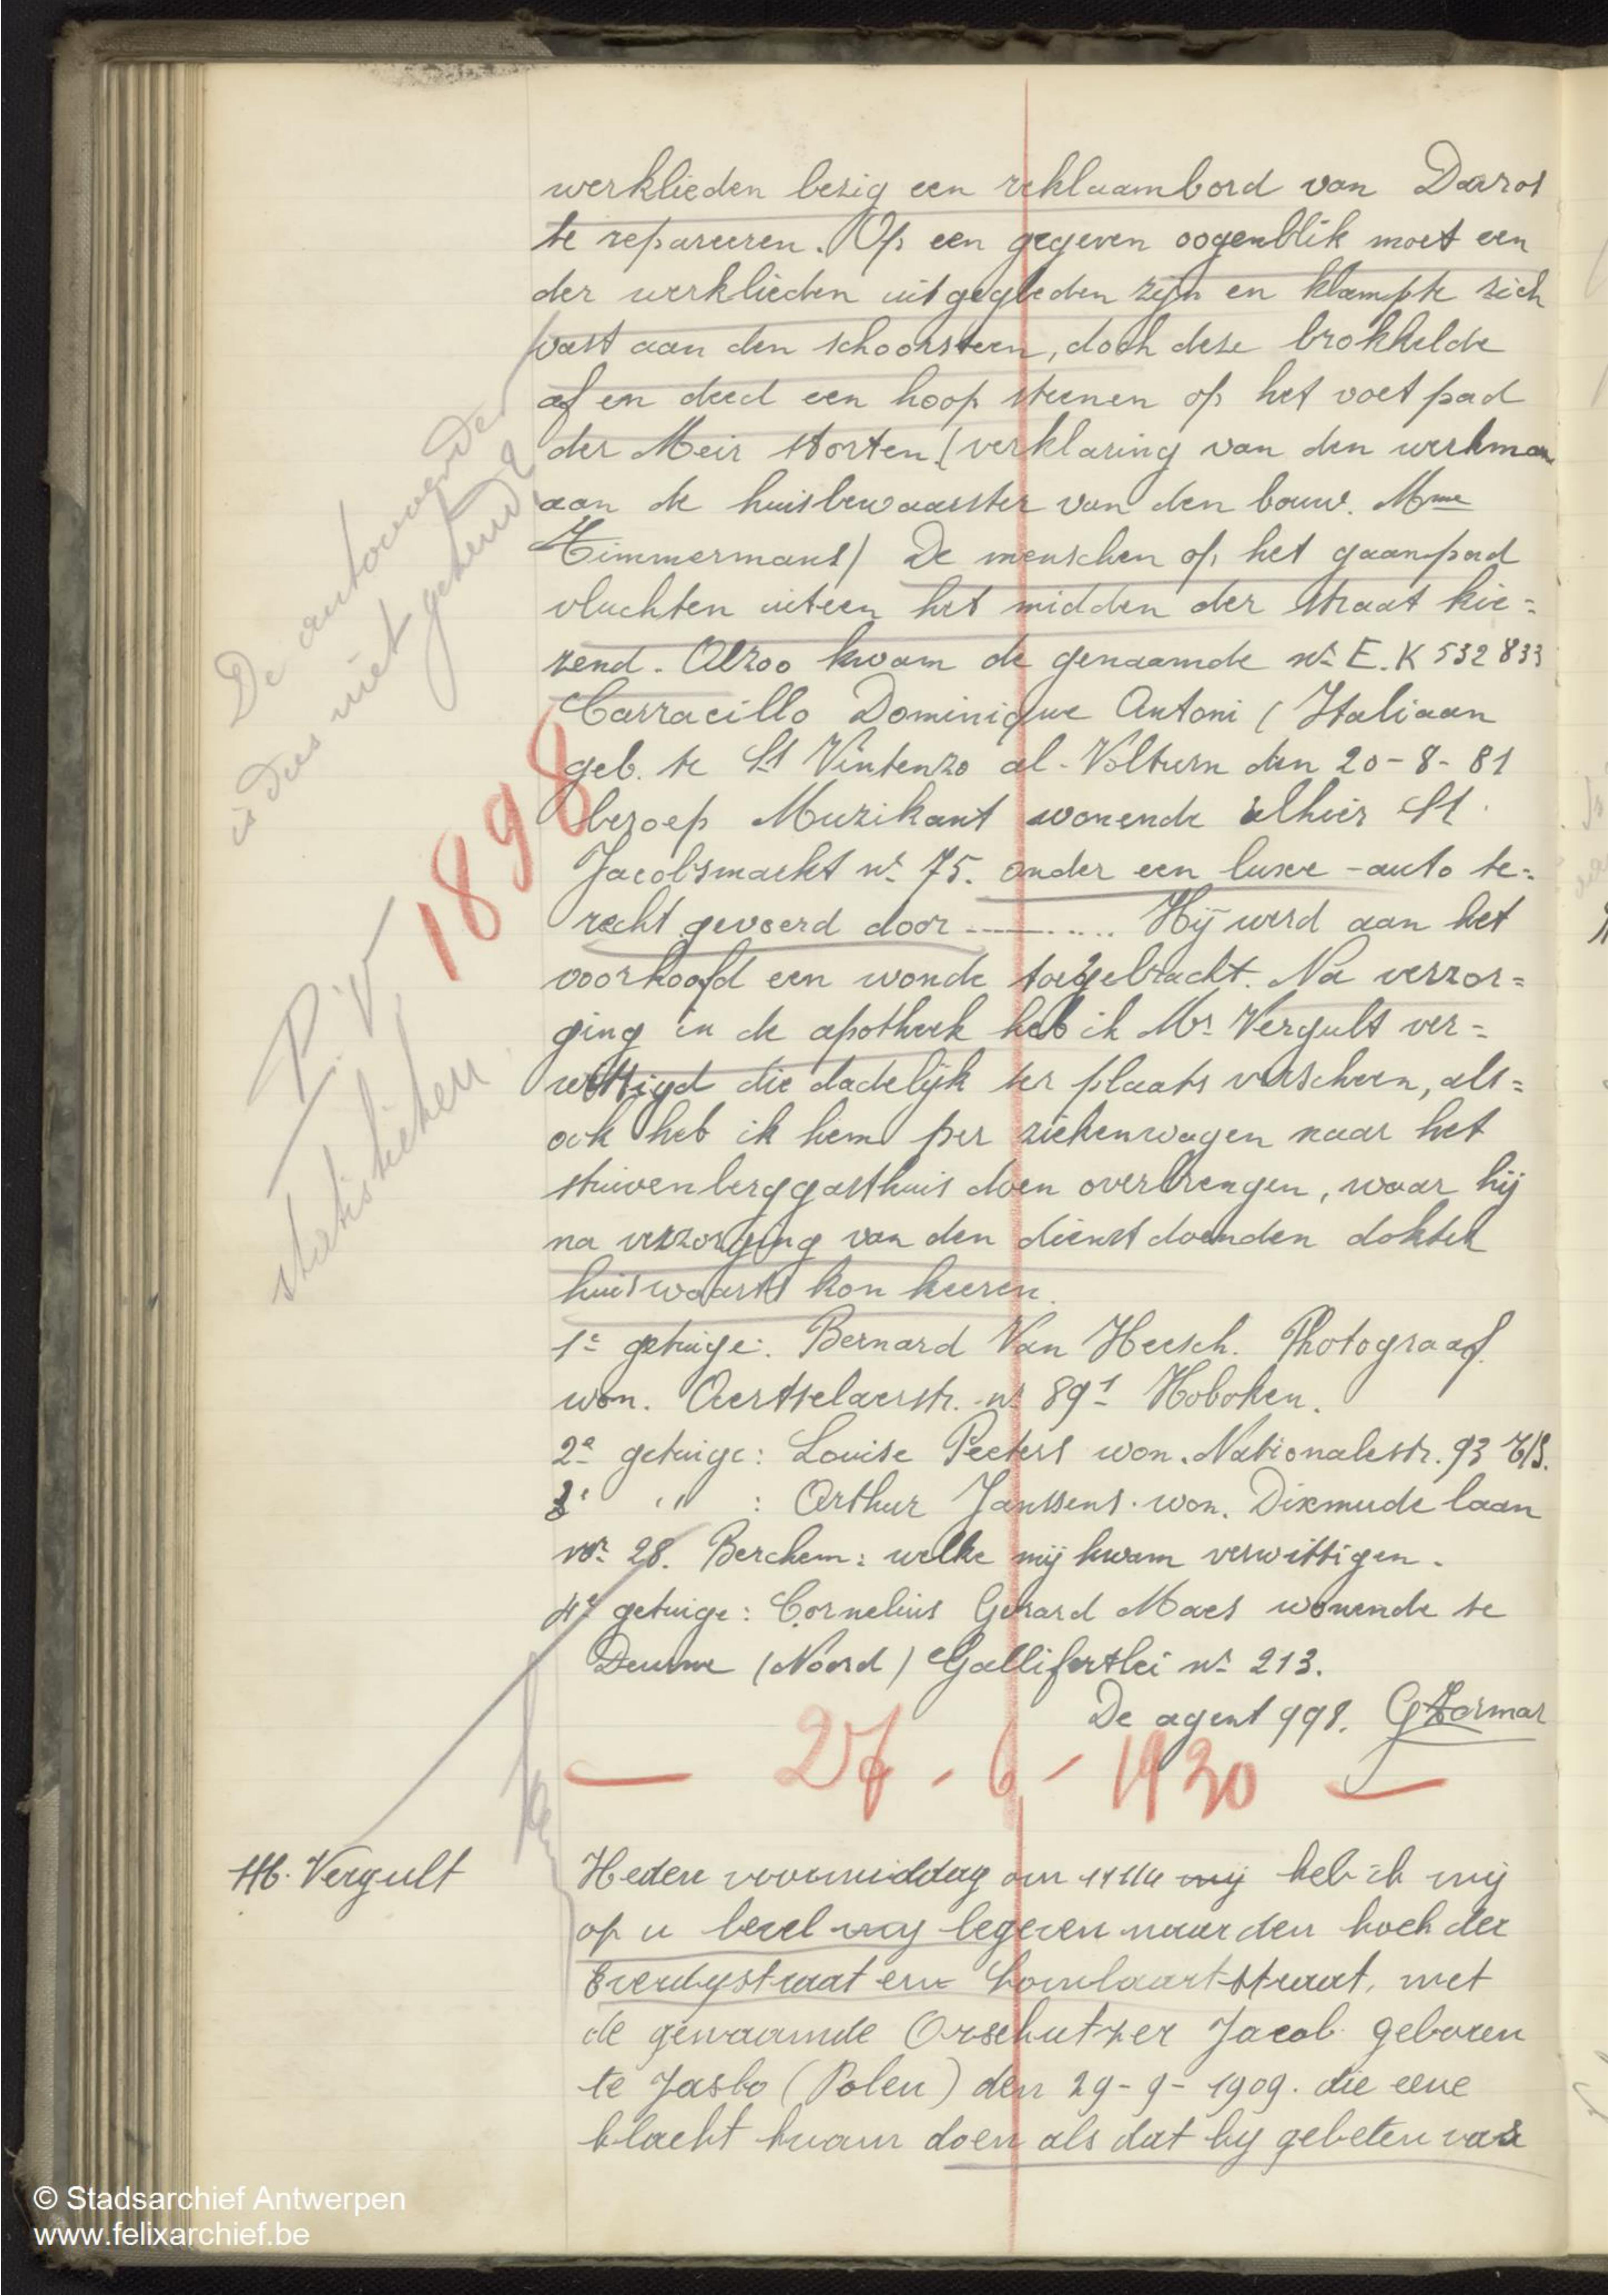 werklieden bezig een reklaambord van Davros
te repareeren. Op een gegeven oogenblik moet een
der werklieden uitgegleden zijn en klampte zich
vast aan den schoorsteen, doch deze brokkelde
af en deed een hoop steenen op het voetpad
der Meir storten (verklaring van den werkman
aan de huisbewaarster van den bouw. Mme
Timmermans) De menschen op het gaanpad
vluchten uiteen het midden der straat kie=
zend. Alzoo kwam de genaamde nr E.K 532 833
Carracillo Dominique Antoni (Italiaan
geb. te St Vintenzo al-Volturn den 20-8-81
beroep Muzikant wonende alhier St.
Jacobsmarkt nr 75. onder een luxe-auto te=
recht gevoerd door ........ Hij werd aan het
voorhoofd een wonde toegebracht. Na verzor=
ging in de apotheek heb ik Mr Vergult ver=
wittigd die dadelijk ter plaats verscheen, als=
ook heb ik hem per ziekenwagen naar het
stuivenberggasthuis doen overbrengen, waar hij
na verzorging van den dienstdoenden dokter
huiswaarts kon keeren.
1e getuige: Bernard Van Heesch. Photograaf.
won. Aertselaerstr. nr 89 1 Hoboken.
2e getuige: Louise Peeters won. Nationalestr. 93 T/S.
3e " : Arthur Janssens. won. Dixmude laan
nr 28. Berchem: welke mij kwam verwittigen.
4e getuige: Cornelius Gerard Maes wonende te
Deurne (Noord) Gallifortlei nr 213.
De agent 998.
De autovoerder
is dus niet gekend
1898
P.V.
statistieken
— 27 - 6 - 1930 —
Hb. Vergult
Heden voormiddag om 11 1/4 mij heb ik mij
op u bevel mij begeven naar den hoek der
Everdystraat en Lombaartstraat, met
de genaamde Orschutzer Jacob geboren
te Jaslo (Polen) den 29-9-1909. die eene
klacht kwam doen als dat hij gebeten was
© Stadsarchief Antwerpen
www.felixarchief.be